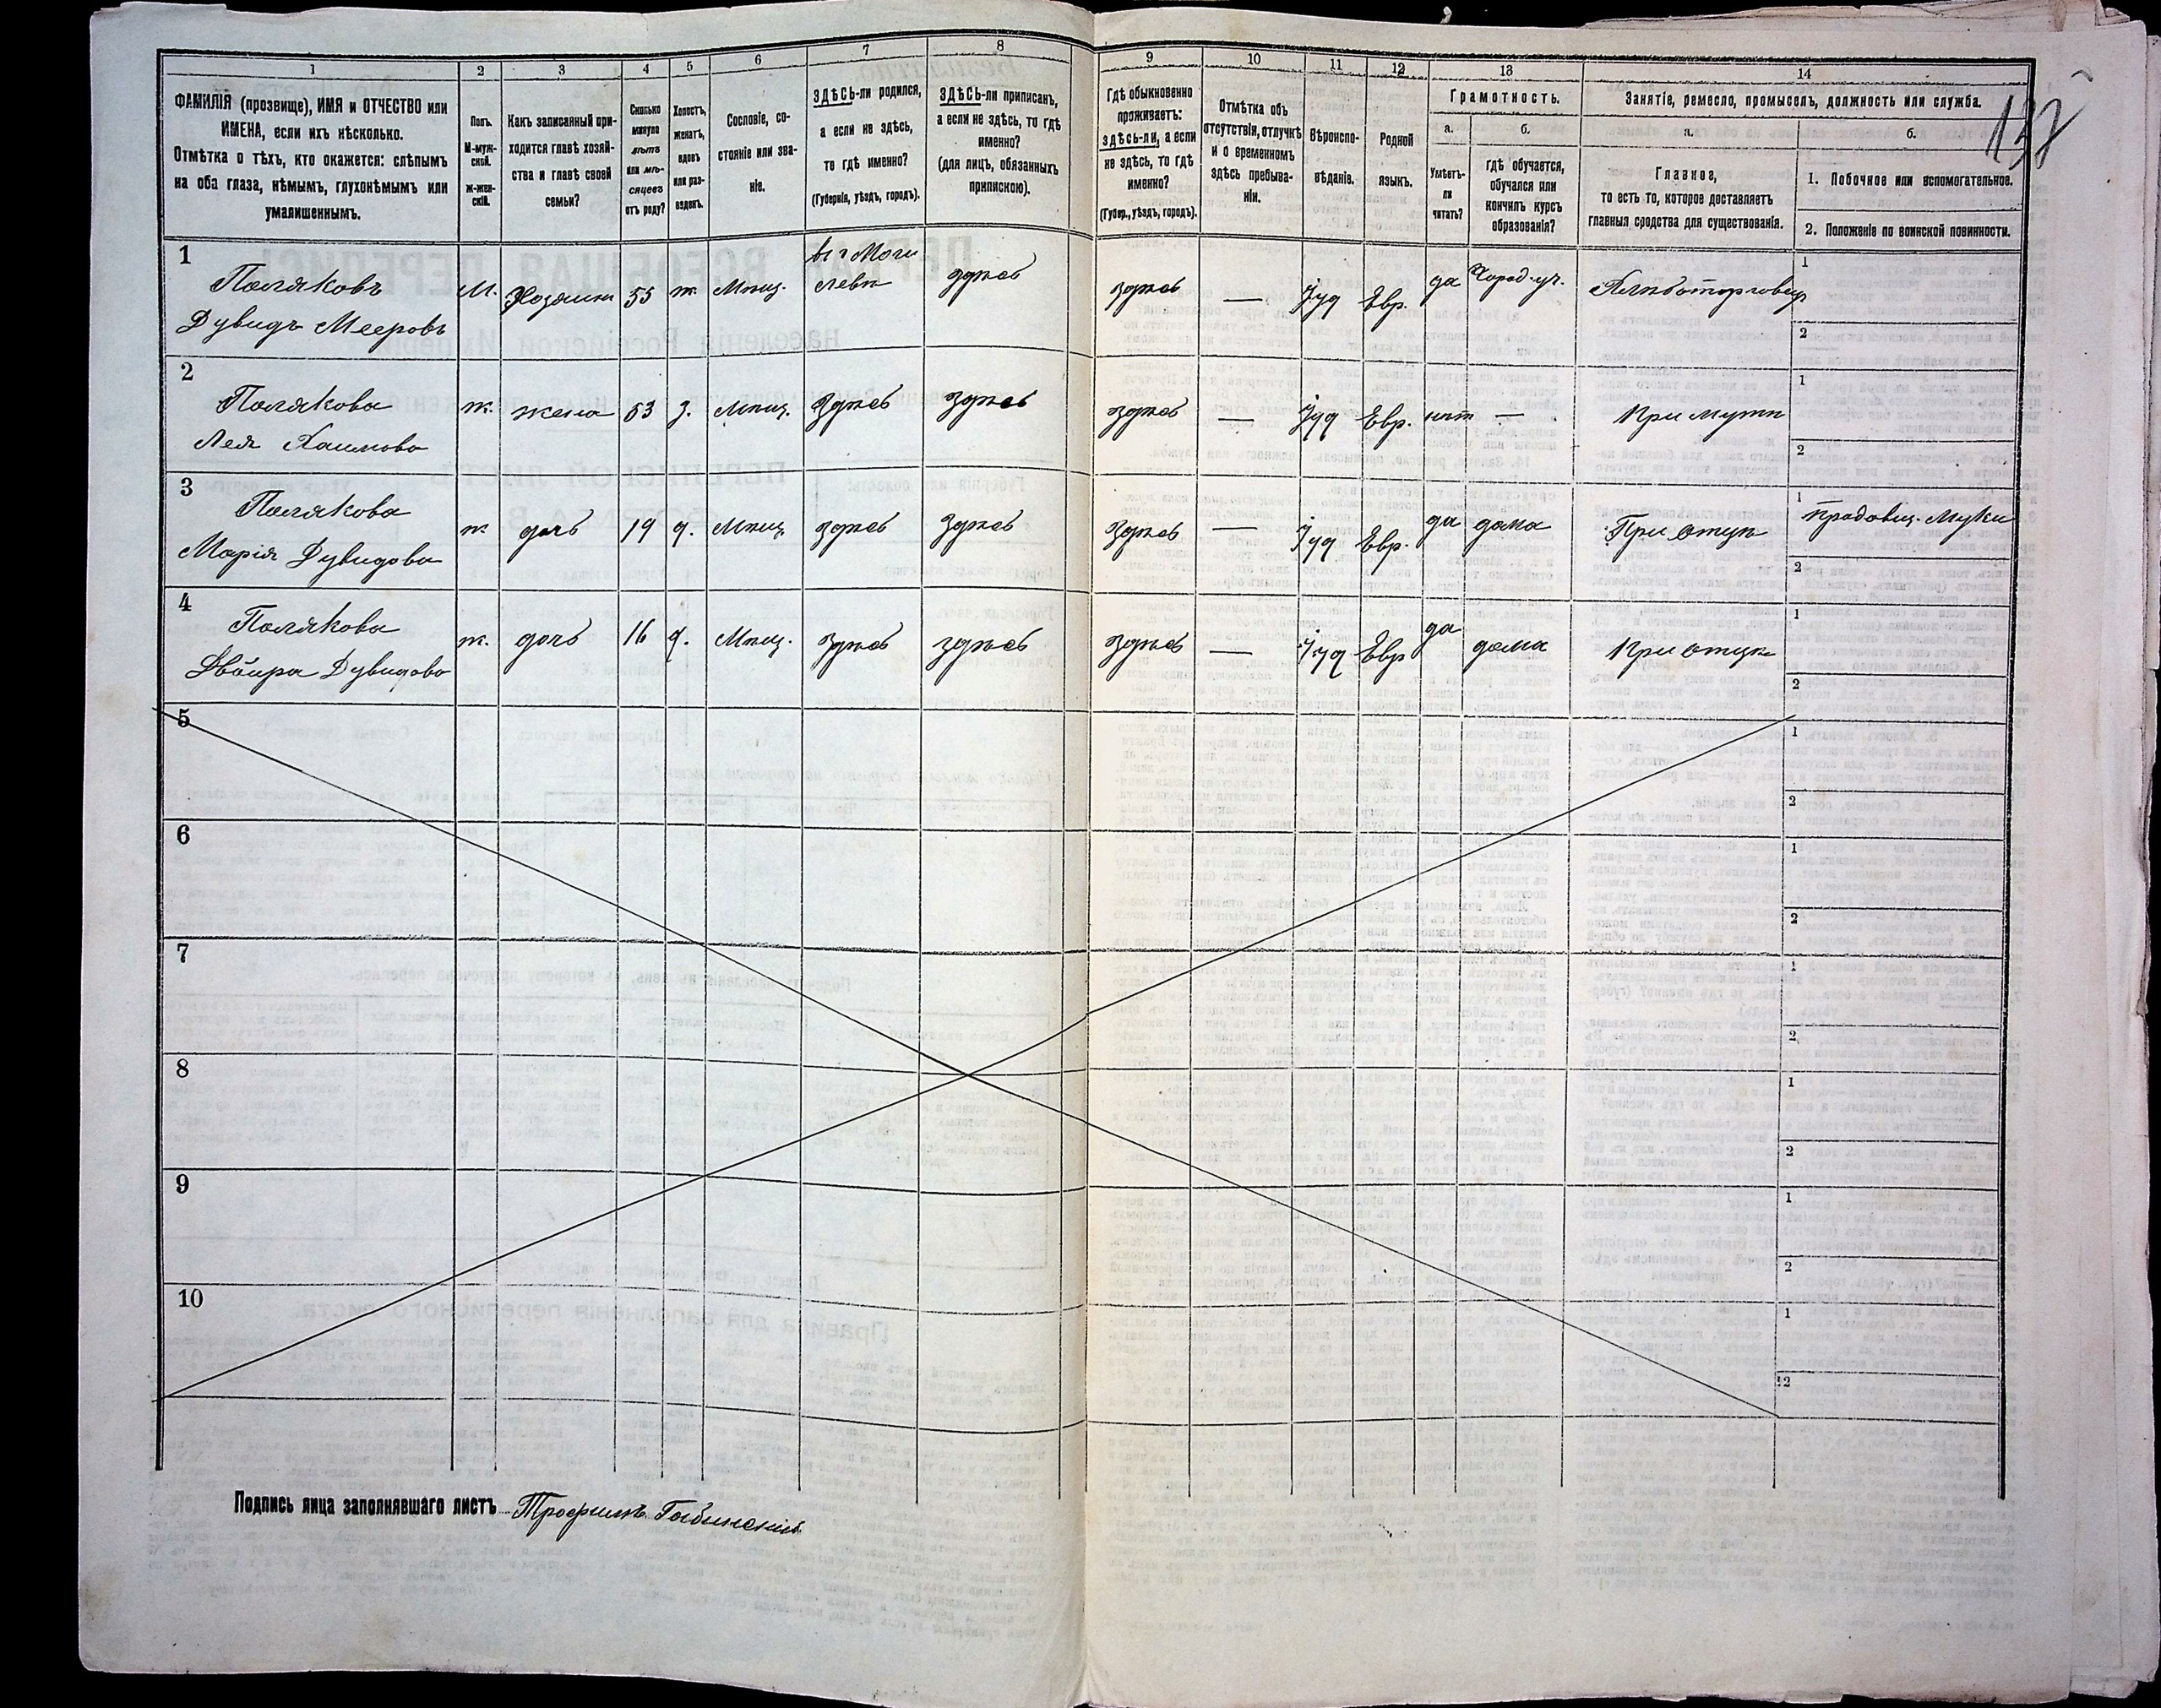 1 2 3 4 5 6 7 8 9 10 11 12 13 14
137
ФАМИЛІЯ (прозвище), ИМЯ и ОТЧЕСТВО или
ИМЕНА, если ихъ нѣсколько.
Отмѣтка о тѣхъ, кто окажется: слѣпымъ
на оба глаза, нѣмымъ, глухонѣмымъ или
умалишеннымъ.
Полъ.
М-муж-
ской.
Ж-жен-
скій.
Какъ записанный при-
ходится главѣ хозяй-
ства и главѣ своей
семьи?
Сколько
минуло
лѣтъ
или мѣ-
сяцевъ
отъ роду?
Холостъ,
женатъ,
вдовъ
или раз-
веденъ.
Сословіе, со-
стояніе или зва-
ніе.
ЗДѢСЬ-ли родился,
а если не здѣсь,
то гдѣ именно?
(Губернія, уѣздъ, городъ).
ЗДѢСЬ-ли приписанъ,
а если не здѣсь, то гдѣ
именно?
(для лицъ, обязанныхъ
припискою).
Гдѣ обыкновенно
проживаетъ:
здѣсь-ли, а если
не здѣсь, то гдѣ
именно?
(Губер., уѣздъ, городъ).
Отмѣтка объ
отсутствіи, отлучкѣ
и о временномъ
здѣсь пребыва-
ніи.
Вѣроиспо-
вѣданіе.
Родной
языкъ.
Грамотность.
а. б.
Умѣетъ-
ли
читать?
гдѣ обучается,
обучался или
кончилъ курсъ
образованія?
Занятіе, ремесло, промыселъ, должность или служба.
а. б.
Главное,
то есть то, которое доставляетъ
главныя средства для существованія.
1. Побочное или вспомогательное.
2. Положеніе по воинской повинности.
1
Поляковъ
Дувидъ Мееровъ
М. Хозяинъ 55 ж. Мѣщ.
въ г Моги
левѣ
здѣсь здѣсь — Іуд Евр. да Город. уч. Хлѣботорговец
1
2
2
Полякова
Лея Хаимова
ж. жена 53 з. Мѣщ. Здѣсь здѣсь здѣсь — Іуд Евр. нѣт — При мужѣ
1
2
3
Полякова
Марія Дувидова
ж дочь 19 д. Мѣщ. здѣсь здѣсь здѣсь — Іуд Евр. да дома При отцѣ
1 продавщ. муки
2
4
Полякова
Двойра Дувидова
ж. дочь 16 д. Мѣщ. здѣсь здѣсь здѣсь — Іуд Евр да дома При отцѣ
1
2
5
1
2
6
1
2
7
1
2
8
1
2
9
1
2
10
1
2
Подпись лица заполнявшаго листъ Трофимъ